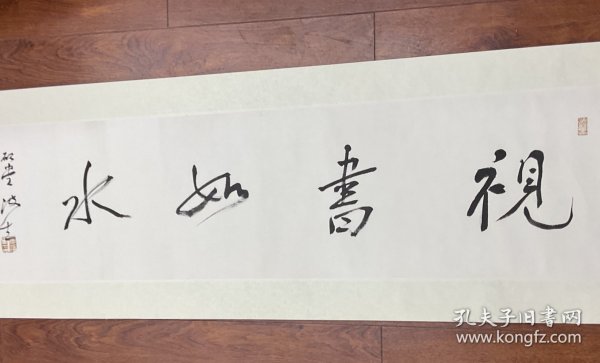 視書如水
孔夫子旧书网
www.kongfz.com